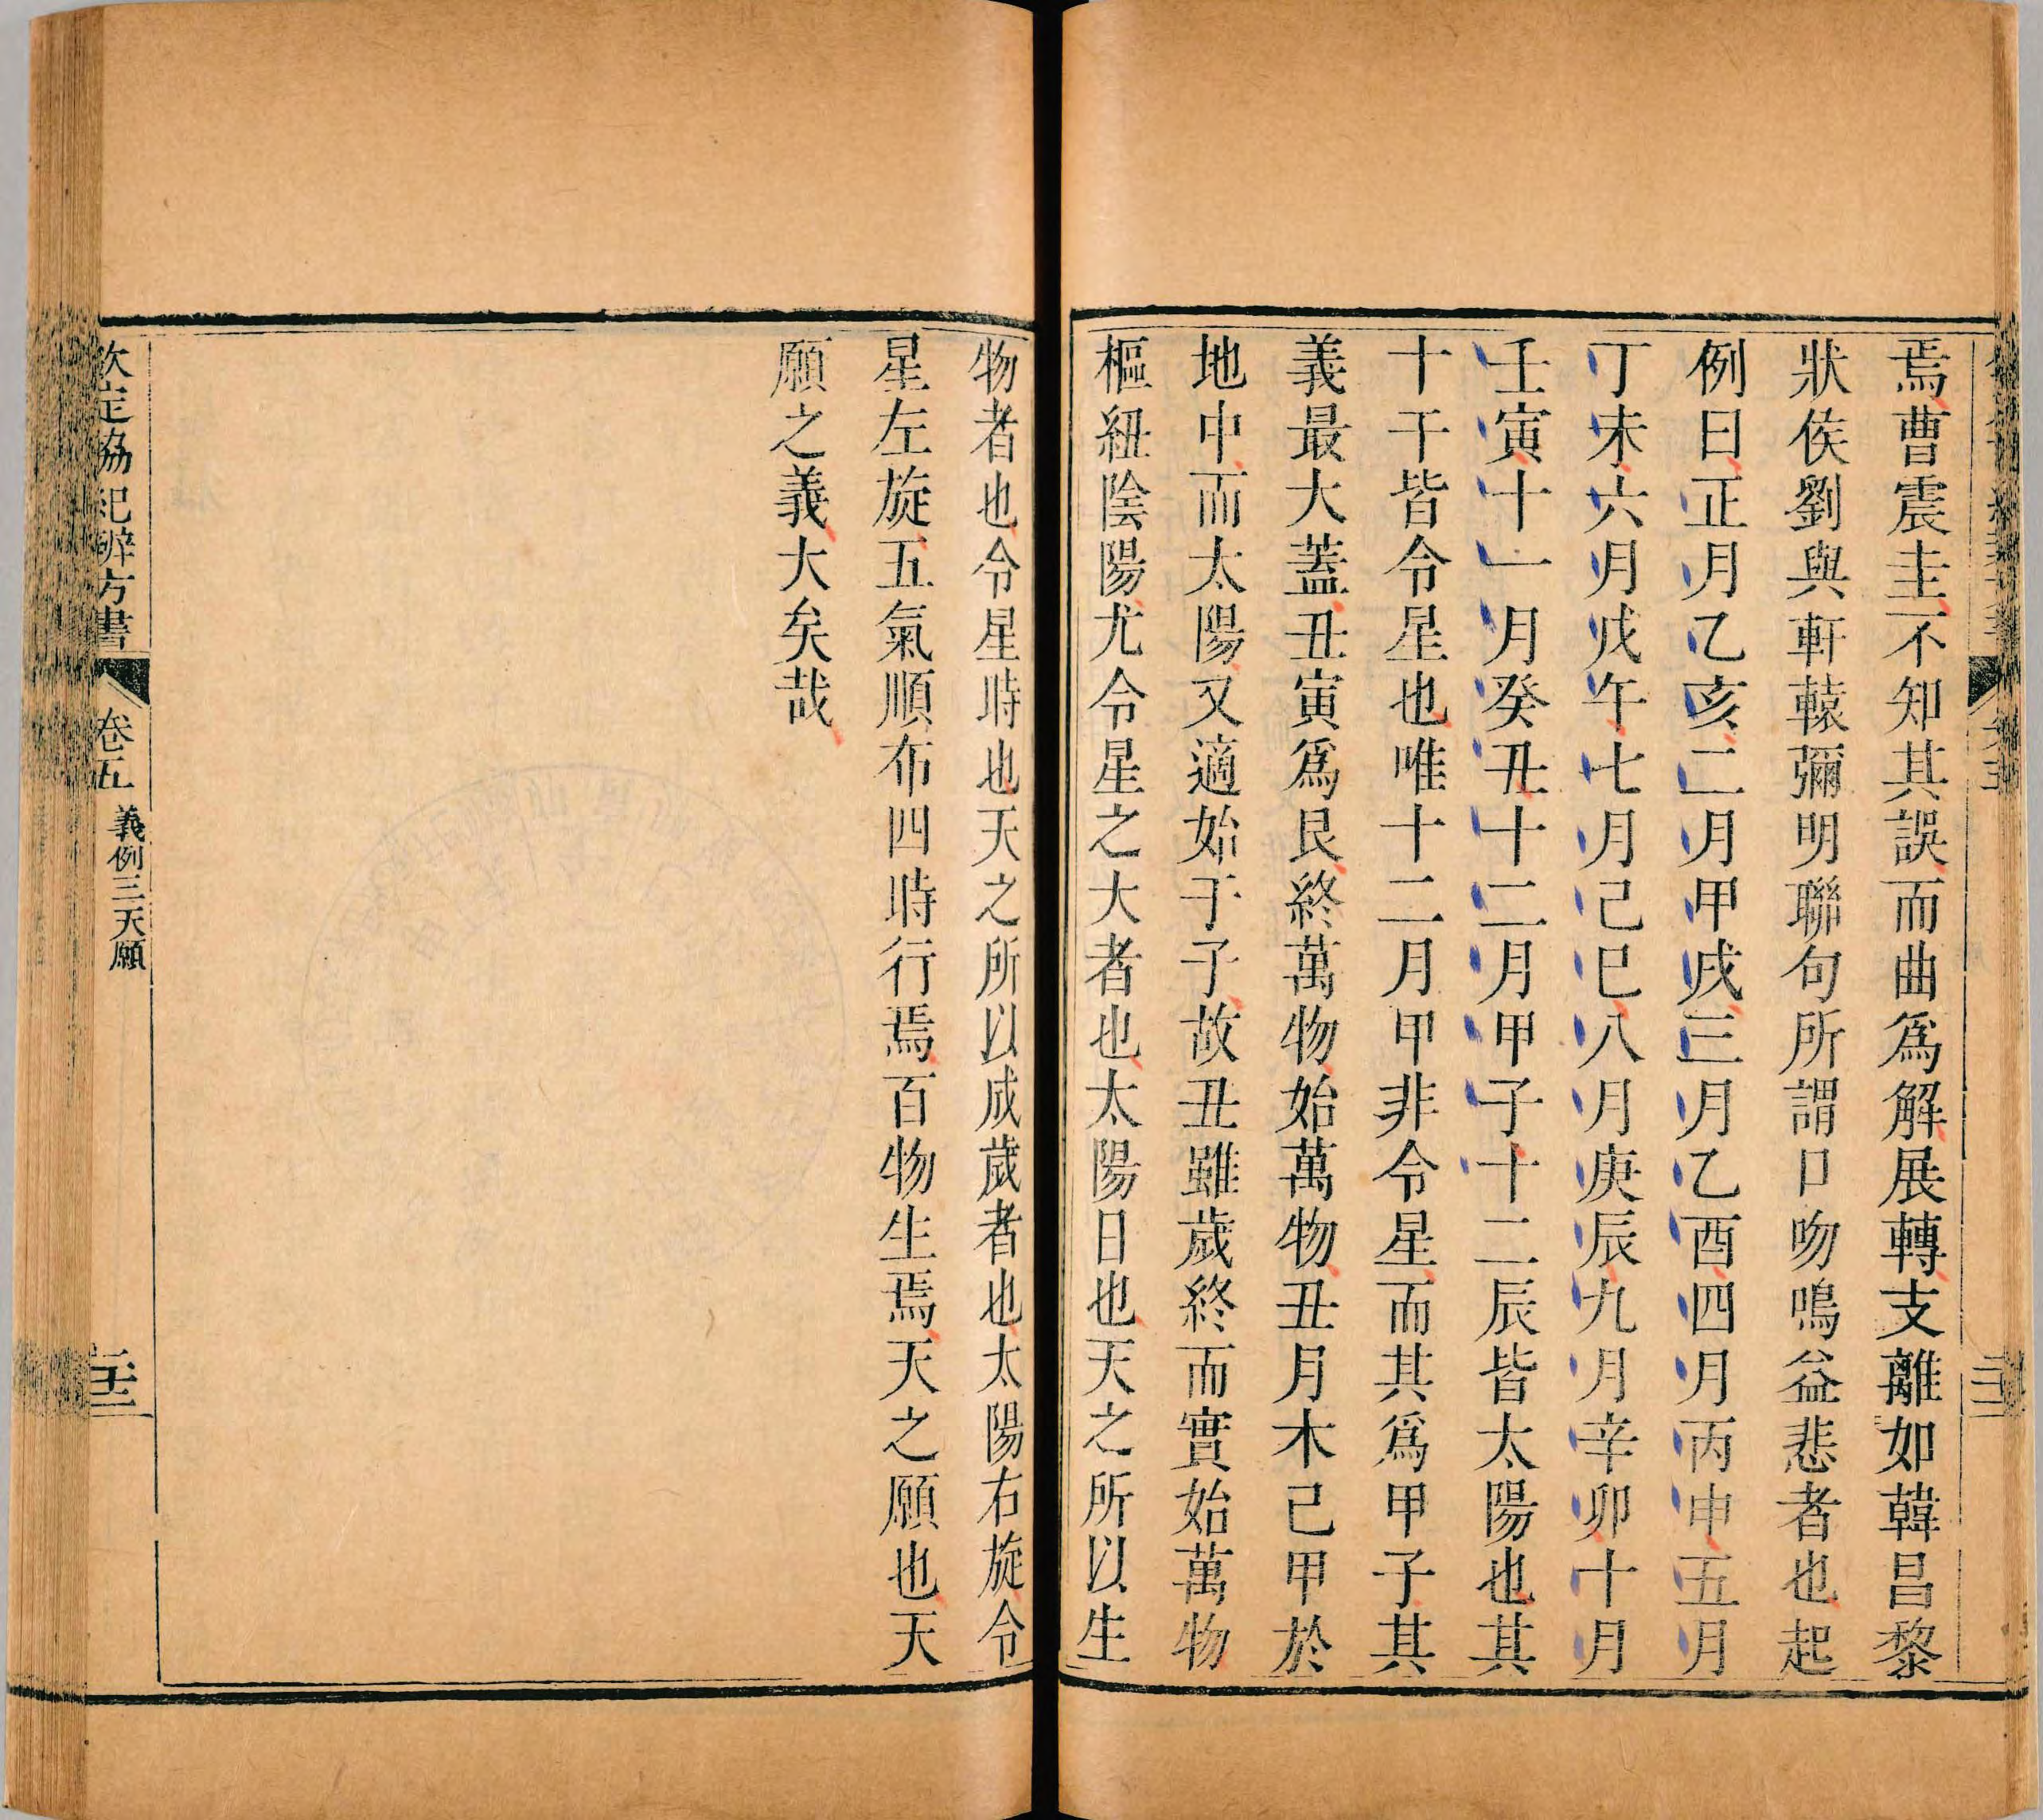 焉曹震圭不知其誤而曲爲解展轉支離如韓昌黎
狀侯劉與軒轅彌明聯句所謂口吻鳴益悲者也起
例曰正月乙亥二月甲戌三月乙酉四月丙申五月
丁未六月戊午七月己巳八月庚辰九月辛卯十月
壬寅十一月癸丑十二月甲子十二辰皆太陽也其
十干皆令星也唯十二月甲非令星而其爲甲子其
義最大蓋丑寅爲艮終萬物始萬物丑月木已甲於
地中而太陽又適始于子故丑雖歲終而實始萬物
樞紐陰陽尤令星之大者也太陽日也天之所以生
物者也令星時也天之所以成歲者也太陽右旋令
星左旋五氣順布四時行焉百物生焉天之願也天
願之義大矣哉
欽定協紀辨方書
卷五
義例三天願